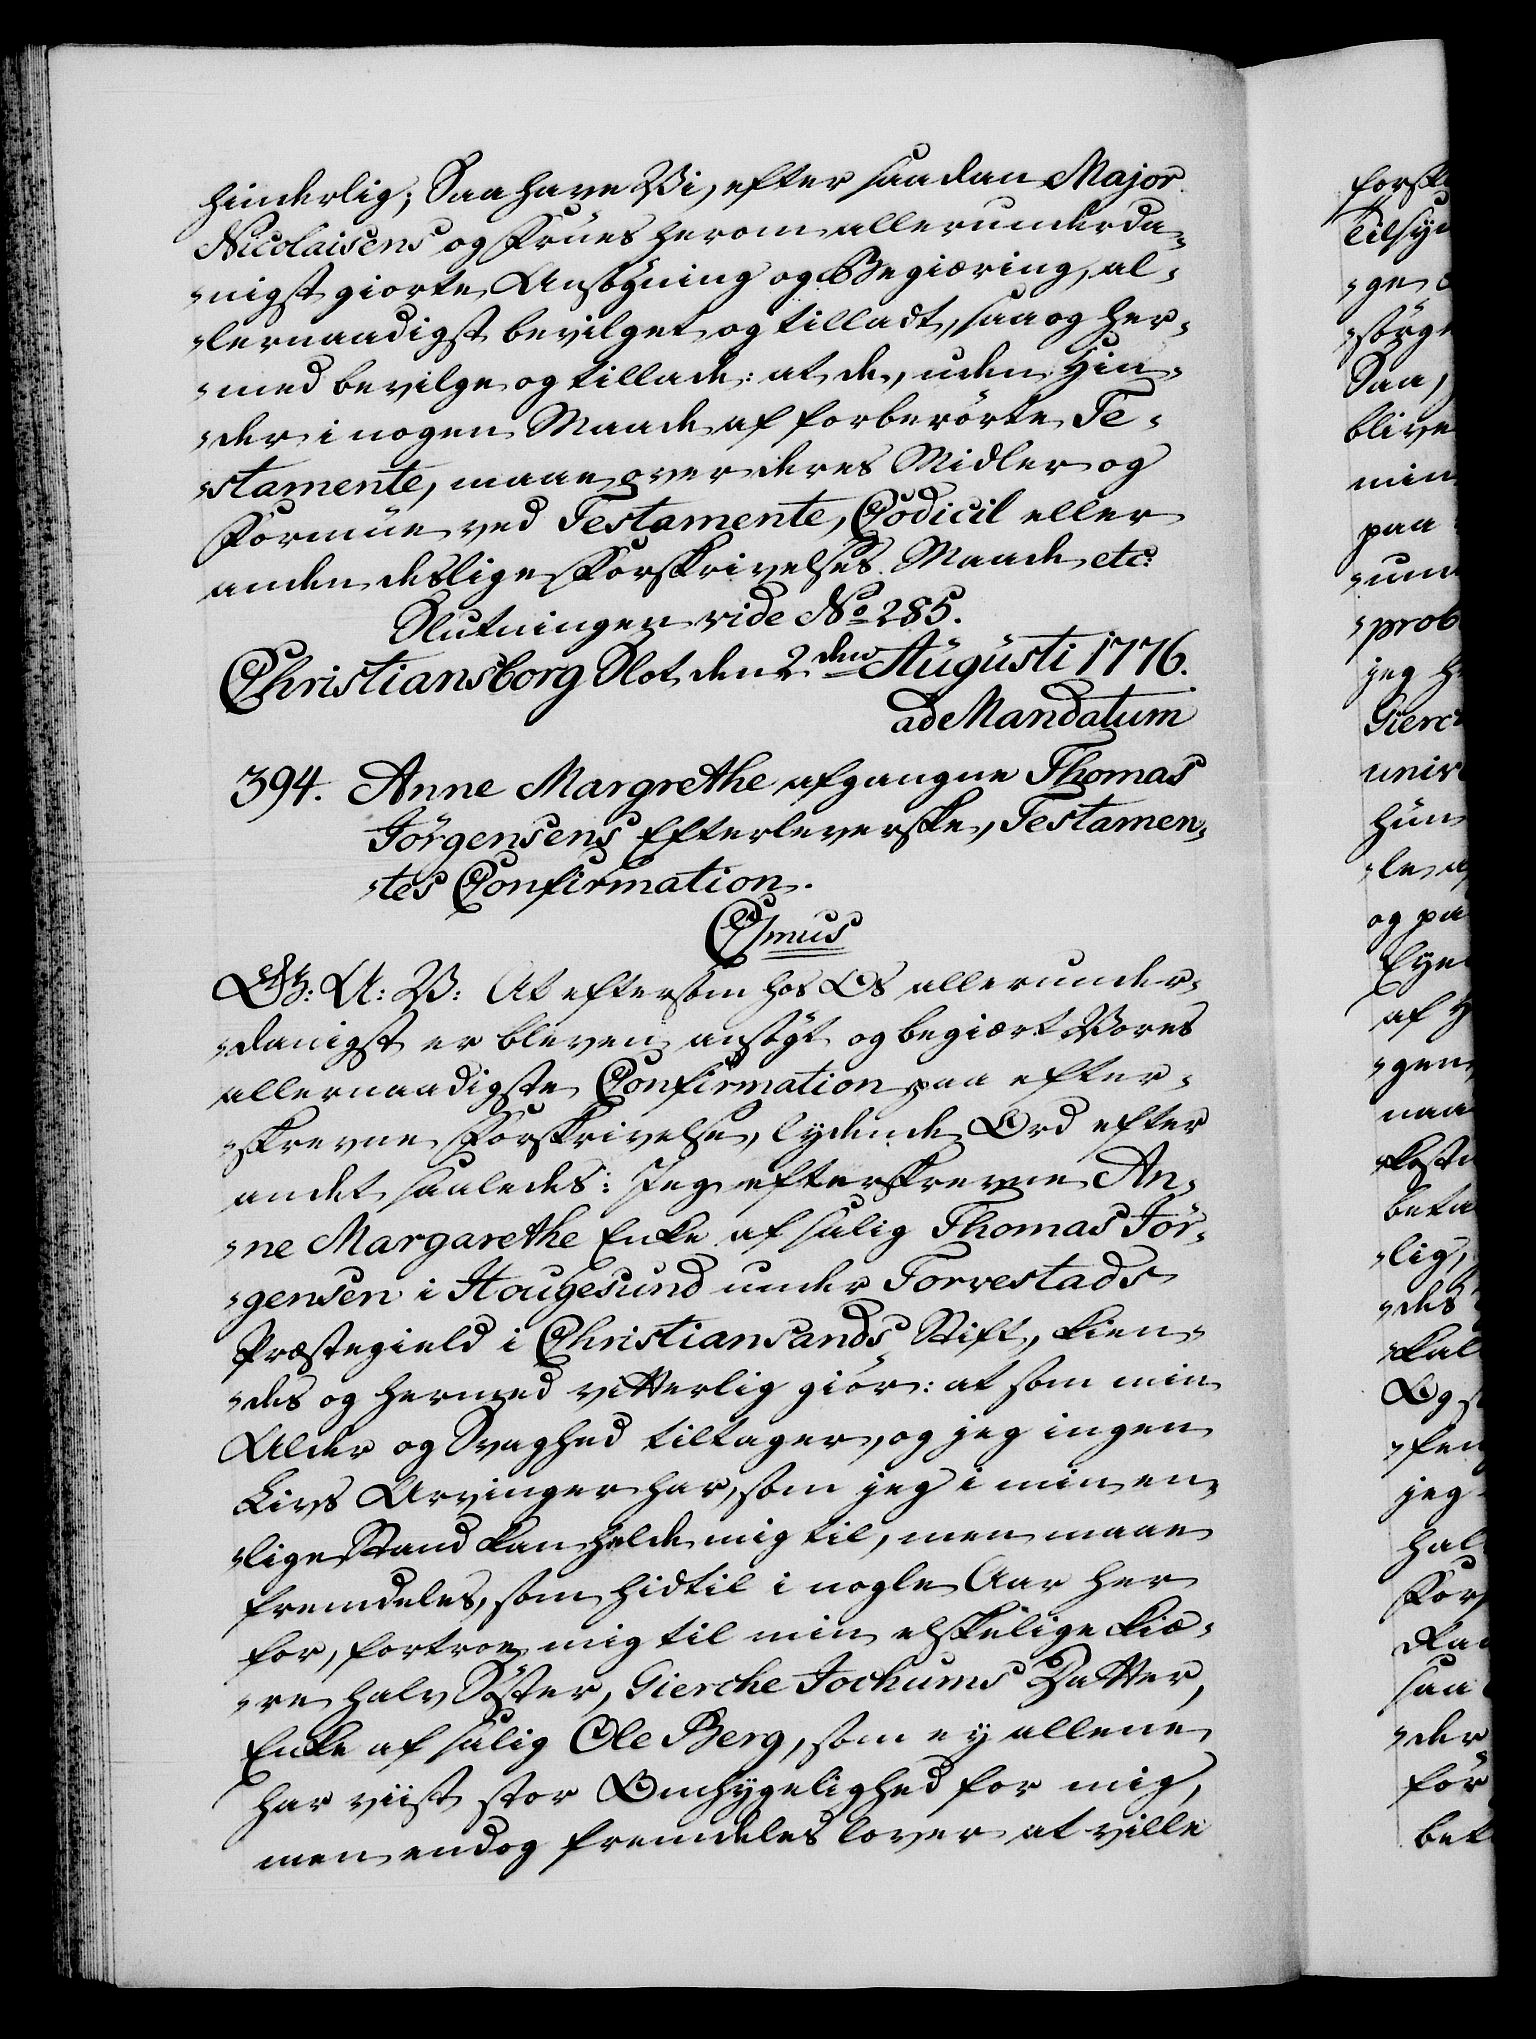 hinderlig; Saa have Vi, efter saadan Major
Nicolaisens og Frues herom allerunderda-
-nigst giorte Ansøgning og Begiæring, al-
-lernaadigst bevilget og tilladt, saa og her-
-med bevilge og tillade: at de, uden Hin-
-der i nogen Maade af forberörte Te-
-stamente, maae over deres Midler og
Formüe ved Testamente, Codicil eller
anden deslige Forskrivelses Maade etc:
Slutningen vide No 285.
Christiansborg Slot den 2den Augusti 1776.
ad Mandatum
394. Anne Margrethe afgangne Thomas
Jörgensens Efterleverske, Testamen-
-tes Confirmation.
C7mus
G: A: V: At eftersom hos Os allerunder-
-danigst er bleven ansögt og begiært Vores
allernaadigste Confirmation paa efter-
-skrevne Forskrivelse, lydende Ord efter
andet saaledes: Jeg efterskrevne An-
-ne Margarethe Enke af salig Thomas Jör-
-gensen i Hougesund under Torvestads
Præstegield i Christiansands Stift, kien-
-des og hermed vitterlig giör: at som min
Alder og Svaghed tiltager, og jeg ingen
Livs Arvinger har, som jeg i min en-
-lige Stand kan holde mig til, men maae
fremdeles, som hidtil i nogle Aar her
for, fortroe mig til min elskelige kiæ-
-re halv Söster, Gierche Jochums Datter,
Enke af salig Ole Berg, som ey allene
har viist stor Omhyggelighed for mig,
men endog fremdeles lover at ville